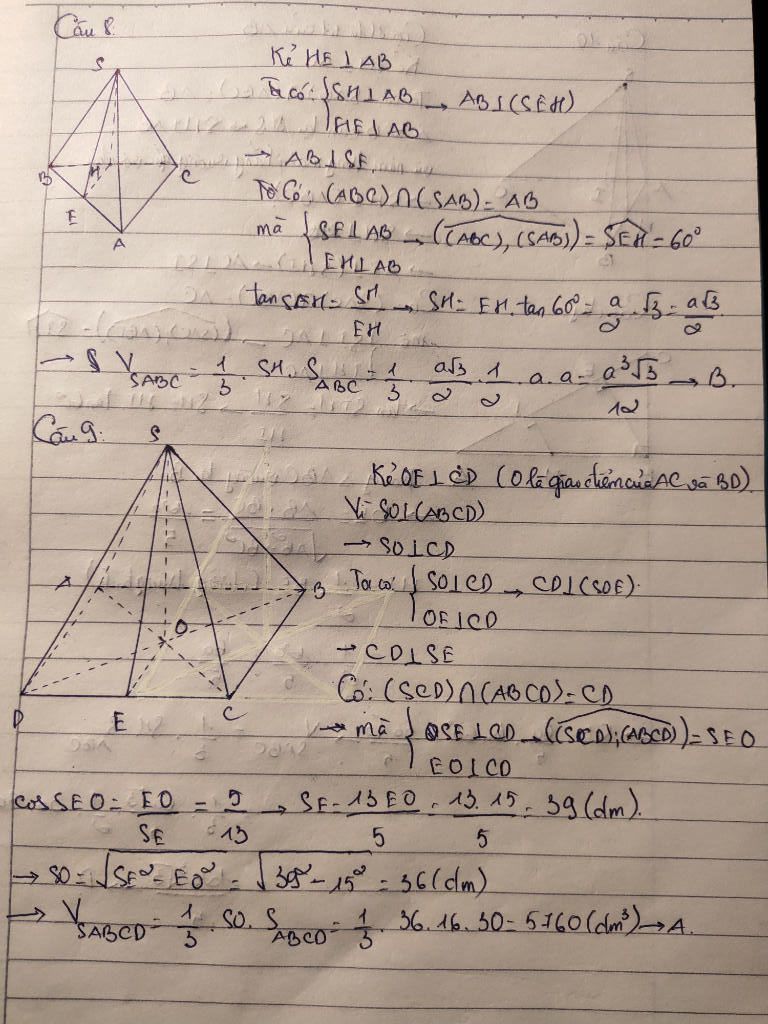 Câu 8:
S
B
H
C
E
A
Kẻ HE ⊥ AB
Ta có: { SH ⊥ AB → AB ⊥ (SEH)
HE ⊥ AB
→ AB ⊥ SE.
Ta Có: (ABC) ∩ (SAB) = AB
mà { SE ⊥ AB → ((ABC), (SAB)) = SEH = 60°
EH ⊥ AB
tan SEH = SH/EH → SH = EH. tan 60° = a/2 . √3 = a√3/2.
→ V_SABC = 1/3 . SH. S_ABC = 1/3 . a√3/2 . 1/2 . a. a = a³√3/12 → B.
Câu 9:
S
A
B
O
D
E
C
Kẻ OE ⊥ CD (O là giao điểm của AC và BD).
Vì SO ⊥ (ABCD)
→ SO ⊥ CD
Ta có: { SO ⊥ CD → CD ⊥ (SOE).
OE ⊥ CD
→ CD ⊥ SE
Có: (SCD) ∩ (ABCD) = CD
→ mà { SE ⊥ CD → ((SCD); (ABCD)) = SEO
EO ⊥ CD
cos SEO = EO/SE = 5/13 → SE = 13EO/5 = 13.15/5 = 39 (dm).
→ SO = √(SE² - EO²) = √(39² - 15²) = 36 (dm)
→ V_SABCD = 1/3 . SO. S_ABCD = 1/3 . 36. 16. 30 = 5760 (dm³) → A.